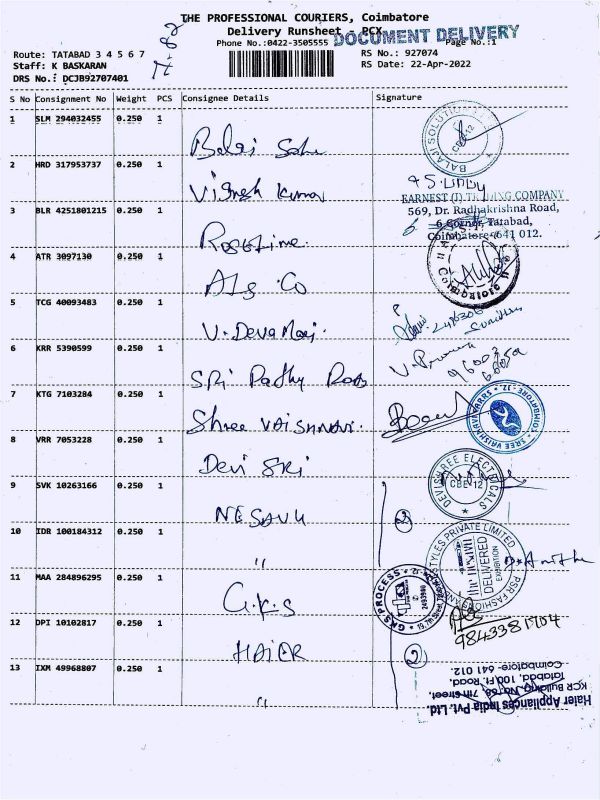 THE PROFESSIONAL COURIERS, Coimbatore
Delivery Runsheet - PCX
DOCUMENT DELIVERY
Phone No.:0422-3505555
Page No.:1
Route: TATABAD 3 4 5 6 7
RS No.: 927074
Staff: K BASKARAN
RS Date: 22-Apr-2022
DRS No.: DCJB92707401
S No Consignment No Weight PCS Consignee Details Signature
1 SLM 294032455 0.250 1
BALAJI SOLUTION
CBE-12
2 HRD 317953737 0.250 1
Vignesh Kumar
EARNEST (I) TRADING COMPANY
569, Dr. Radhakrishna Road,
6 Corner, Tatabad,
Coimbatore-641 012.
3 BLR 4251801215 0.250 1
4 ATR 3097130 0.250 1
Als Co
Coimbatore
5 TCG 40093483 0.250 1
V. Devaraj.
6 KRR 5390599 0.250 1
Sri Pathy
7 KTG 7103284 0.250 1
Shree VAISHNAVI.
SREE VAISHNAVI
COIMBATORE - 12
8 VRR 7053228 0.250 1
Devi SRI
DEVISHREE ELECTRICALS
CBE-12
9 SVK 10263166 0.250 1
NESAVU
2
10 IDR 100184312 0.250 1
"
STYLES PRIVATE LIMITED
PSR FASHION
the nesavu
EXHIBITION
DELIVERED
11 MAA 284896295 0.250 1
G.K.S
GKS PROCESS
2493940
12 DPI 10102817 0.250 1
HAIER
9843381904
2
13 IXM 49968807 0.250 1
"
Haier Appliances India Pvt. Ltd.
KCR Building, No.68, 7th Street,
Tatabad, 100 Ft. Road,
Coimbatore- 641 012.